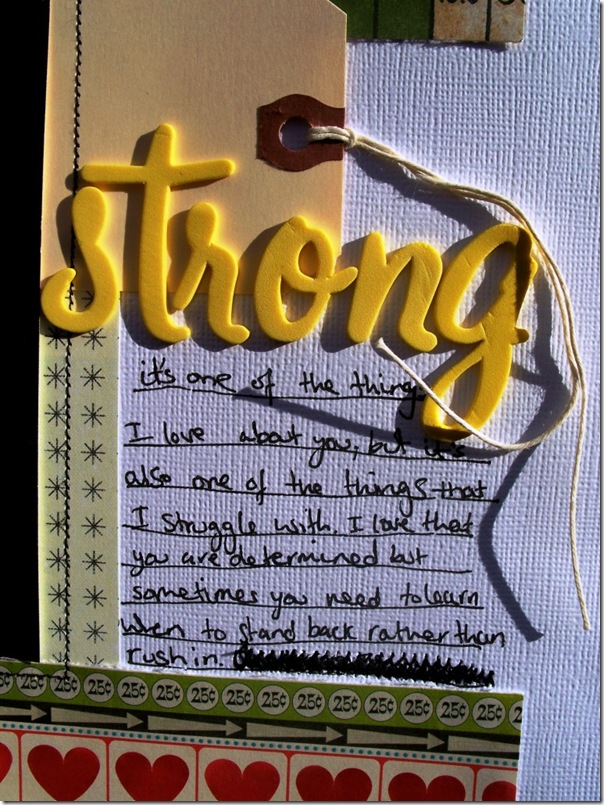 strong
it's one of the things
I love about you, but it's
also one of the things that
I struggle with. I love that
you are determined but
sometimes you need to learn
when to stand back rather than
rush in.
25¢ 25¢ 25¢ 25¢ 25¢ 25¢ 25¢ 25¢ 25¢ 25¢ 25¢ 25¢